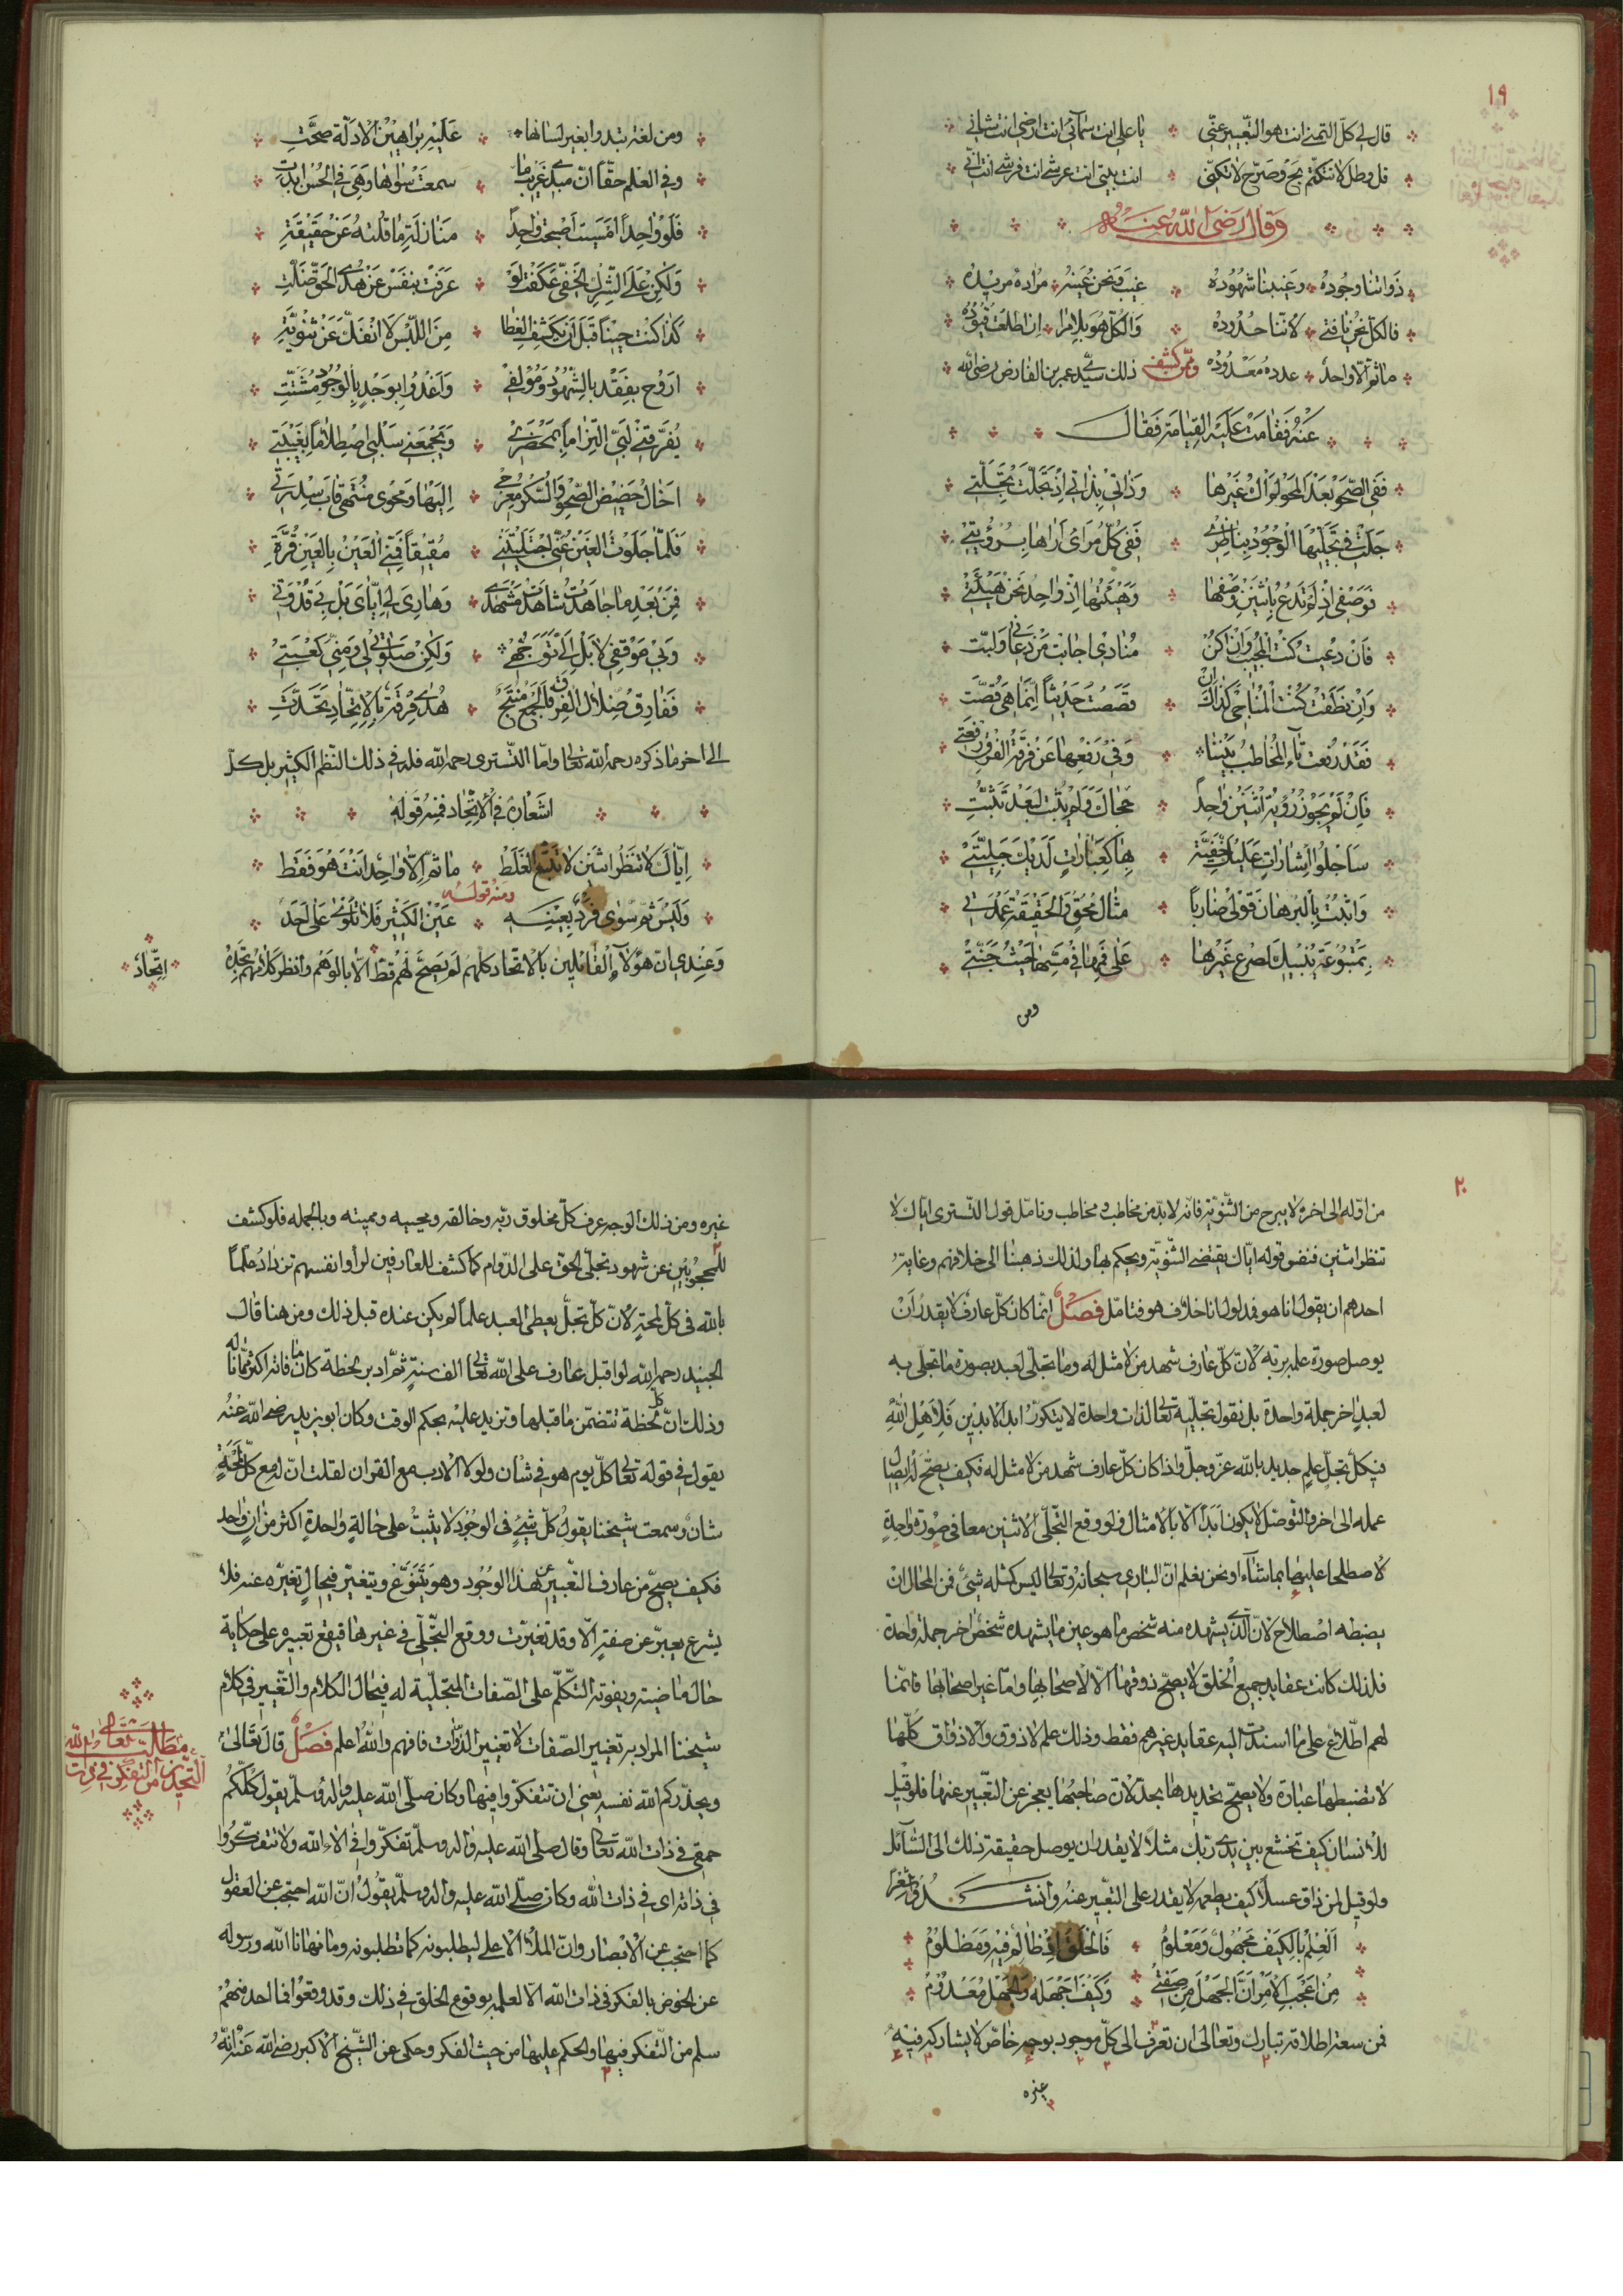 ١٩
قال لي كلّ التمني انت هو التّعبير عنّي ۞ يا علي انت سمآئي انت ارضي انت شاني
قل وطل لا تتكتّم بح وصرّح لا تكنّى ۞ انت بيتي انت عرشي انت فرشي انت انّي
وَقالَ رَضي الله عنه
ذَواتنا وجُودُهُ وغيبنا شهُودُهُ ۞ غيبَ ونحن عَينهُ مُراده مريدهُ
فالكلّ نحن يا فتى لاننا حدُودهُ ۞ وَالكلّ هُوَ بلا مِرا ان اطلعت قيُودُهُ
ما ثم الّا واحدٌ عدده مَعدُودُهُ وممّن كشف ذلك سيّدي عمر بن الفارض رضى الله
عَنهُ فقامَت عَليَه القِيامَة فقالَ
فَفي الصّحوِ بعدَ المحوِ لم اَكُ غيرَها ۞ وَذاتي بذاتي اِذ تحلّت تَجَلّتِ
جَلَت في تجَلّيها الوُجُودَ لِناظِري ۞ فَفي كلّ مرَاىً اَراها برُؤيَتي
فَوَصفي اِذ لَم تُدعَ بِاثنَين وَصفُها ۞ وَهَيئتها اِذ واحِدٌ نحنُ هَيئتي
فَان دُعِيت كُنت المجُيبَ وَان اكُن ۞ مُنادىً اجابَت مَن دعاني وَلبّت
وَاِن نطَقَت كنت المُناجي كذاكَ ان ۞ قصَصتُ حَديثاً اِنّما هي قصّت
فَقد رُفعت تاء المُخاطب بَيننا ۞ وَفي رَفعِها عَن فرقة الفرقِ رفعتي
فَاِن لَم يُجوّز رُؤية اثنَين واحِداً ۞ حجاكَ وَلم يثبت لبُعدِ تَثَبُّتِ
سَاجلو اشاراتٍ عَليكَ خَفيّة ۞ بها كَعِباراتٍ لَديكَ جَليّتي
وَاثبتُ بِالبُرهان قَولي ضاربًا ۞ مثالَ مُحقّ وَالحَقيقَة عُمدَتي
بِمَتبُوعَةٍ يُنبيكَ في الصرع غَيرُها ۞ عَلى فَمِها في مَسّها حَيثُ جُنّتِ
ومن
ومن لغة تبدوا بغير لسانها ۞ عَليهِ بَراهينُ الادلّة صَحّتِ
وفي العلم حقّاً انّ مبدي غَريبِ ما ۞ سمعتَ سواها وَهيَ في الحُسن ابدَتِ
فَلَو وَاحِداً امسَيت اَصبحت واجداً ۞ مَنازلَةً ما قلته عَن حَقيقَةِ
وَلكِن عَلى الشِّرك الخَفيّ عَكفتَ لَو ۞ عرَفت بنَفسٍ عَن هُدى الحقّ ضلّتِ
كَذا كنت حيناً قبلَ اَن يُكشف الغِطا ۞ مِنَ اللّبسِ لا انفكّ عَن ثنويّة
ارَوح بفَقدٍ بالشّهُود مُؤلفي ۞ وَاَغدُوا بِوَجدٍ بِالوجُود مُشتّتي
يُفَرّقني لُبّي التِزاماً بمَحضَري ۞ وَيَجمَعني سَلبي اصطِلاماً بغَيبَتي
اَخالُ حَضيضي الصّحوَ وَالسّكرَ مَعرجي ۞ اِليَها وَمحوي مُنتهى قابَ سِدرَتي
فَلمّا جلَوت الغَينَ عنّي اجتَليتَني ۞ مُفيقاً فَمني العَينُ بِالعَينِ قُرّةِ
فمِن بَعدِ ما جاهَدتُ شاهَدتُ مشهَدي ۞ وَهادِيّ لي اِيّايَ بَل بي قدوَتي
وَبي مَوقفي لا بَل اِلَيّ تَوَجّهي ۞ وَلكِن صَلوتي لي وَمنّي كَعبَتي
فَفارِق ضلالَ الفرق فالجمعُ مُنتجٌ ۞ هُدى فِرقةٍ بِالاتّحادِ تحَدّتِ
الى اخر ما ذكره رحمه الله تعالى وامّا التّستري رحمه الله فله في ذلك النّظم الكثير بل كلّ
اشعاره في الاتّحاد فمنه قوله
اِيّاكَ لا تنظر اثنَين لا تتّبع الغَلَط ۞ ما ثمّ اِلّا واحِد انتَ هُوَ فَقَط
ومنه قوله
وَلَيسَ ثمّ سِوى فَردٌ بِعَينِهِ ۞ عَينُ الكَثير فَلا تَلوي عَلى اَحَدٍ
وَعِندي بان هؤلاءِ القائلين بالاتحاد كلهم لم يَصحّ لَهُم قَطّ الّا بالوَهم وانظر كلامهم تجده
اتّحاد
٢٠
من اوّله الى اخره لا يبرح من الثّنويّة فانّه لا بدّ من مخاطبه ومخاطب وتامّل قول التّستري ايّاك لا
تنظر اثنين فنفس قوله ايّاك يقتضى الثّنويّة ويحكم بها ولذلك ذهبنا الى خلافهم وغاية
احدهم ان يقول انا هو فمدلول انا خلاف هو فتامّل فَصْلٌ انّما كان كلّ عارف لا يقدرُ اَنْ
يوصل صورة علمه بربّه لانّ كلّ عارف شهد من لا مثل له وما تجلّى لعبد بصورة ما تجلّى به
لعبدٍ اخر جملة واحدة بل نقول تجلّيه تعالى لذات واحدة لا يتكرّر ابد الابدين فلاهل الله
في كلّ تجلٍّ علم جديد بالله عزّ وجلّ واذا كان كلّ عارف شهد من لا مثل له فكيف يصحّ له ايصال
علمه الى اخر والتّوصّل لا يكون ابَدًا الّا بالامثال فلو وقع التّجلّي لاثنين معا في صُورة واحِدةٍ
لاصطلحا عليها بما شاءا ونحن نعلم انّ البارى سبحانه وتعالى ليس كمثله شئ فمن المحال ان
يضبطه اصطلاح لانّ الّذي يشهده منه شخص ما هو عين ما يشهده شخص اخر جملة واحدة
فلذلك كانت عقايد جميع الخلق لا يصحّ ذوقها الّا لاصحابها وامّا غير اصحابها فانّما
لهم اطّلاع على ما اسندت اليه عقايد غيرهم فقط وذلك علم لا ذوق والاذواق كلّها
لا تضبطها عبارة ولا يصحّ تحديدها بحدّ لانّ صاحبها يعجز عن التّعبير عنها فلو قيل
للانسان كيف تخشع بين يدى ربّك مثلاً لا يقدر ان يوصل حقيقة ذلك الى السّآئل
ولو قيل لمن ذاق عسلاً كيف طعمه لا يقدر على التّعبير عنه وانشدوا شعرا
اَلعِلمُ بِالكَيفِ مَجهُولٌ وَمَعلُومُ ۞ فَالخلقُ في ظالمٍ فيهِ وَمَظلُومُ
مِن اَعجَبِ الاَمرِ اَنّ الجَهلَ مِن صِفَتي ۞ وَكَيفَ اَجهَلهُ وَالجَهلُ مَعدُومُ
فمن سعة اطلاقه تبارك وتعالى ان تعرف الى كلّ موجود بوجه خاصّ لا يشاركه فيه
غيره
غيره ومن ذلك الوجه عرف كلّ مخلوق ربّه وخالقه ومحييه ومميته وبالجمله فلو كشف
للمحجُوبين عن شهود تجلّي الحق على الدّوام كما كشف للعارفين لراوا انفسهم تزدادُ علماً
بالله في كلّ لمحةٍ لانّ كلّ تجلٍّ يعطى العبد علماً لم يكن عنده قبل ذلك ومن هنا قال
الجنيد رحمه الله لو اقبل عارف على الله تعالى الف سنةٍ ثمّ ادبر لحظة كان ما فاته اكثر ممّا ناله
وذلك انّ كل لحظة تتضمّن ما قبلها وتزيد عليه بحكم الوقت وكان ابو يزيد رضى الله عنهُ
يقول في قوله تعالى كلّ يوم هو في شأن ولولا الادب مع القران لقلت انّ له مع كلّ لمحةٍ
شان وسمعت شيخنا يقول كلّ شئٍ في الوجُود لا يثبتُ على حالةٍ واحدةٍ اكثر من انٍ واحد
فكيف يصحّ من عارف التّعبير عن هذا الوجُود وهو يَتنَوّع ويتغيّر فبحالِ تغيّره عنه فلا
يشرع يعبرّ عن صفةٍ الّا وقد تغيّرت ووقع التّجلّي في غيرها فيقع تعبيره على حكاية
حال ماضية ويفوته التكلّم على الصّفات المتجلّية له في حال الكلام والتّغيير في كلام
شيخنا المراد به تغيير الصّفات لا تغيير الذّوات فافهم والله اعلم فَصْلٌ قال تعالىٰ
ويحذّركم الله نفسه يعنى ان تتفكّروا فيها وكان صلّى الله عليه واله وسلّم يقول كلّكم
حمقى في ذات الله تعالى وقال صلى الله عليه واله وسلّم تفكّروا في الاء الله ولا تتفكّرُوا
في ذاته اى في ذات الله وكان صلّى الله عليه واله وسلّم يقول انّ الله احتجب عن العقول
كما احتجب عن الابصار وانّ الملأ الاعلى ليطلبونه كما تطلبونه وما نهانا الله ورسوله
عن الخوض بالفكر في ذات الله الّا لعلمه بوقوع الخلق في ذلك وقد وقعُوا فما احد منهُم
سلم من التّفكر فيها والحكم عليها من حيث الفكر وحكى عن الشّيخ الاكبر رضى الله عنه انّهُ
مطالب
التّحذير من التفكر في ذات الله تعالى